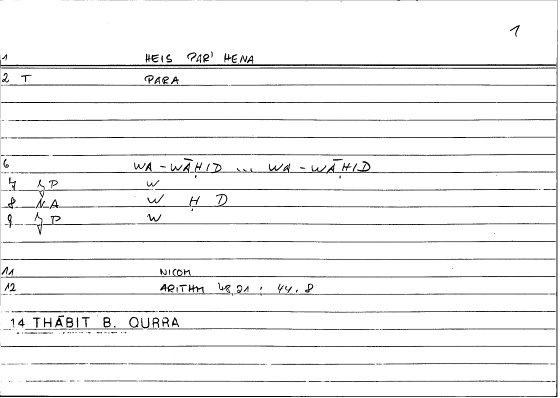 1
1 HEIS PAR' HENA
2 T PARA
6 WA-WĀḤID ... WA-WĀḤID
7 JP W
8 NA W Ḥ D
9 JP W
11 NICOM
12 ARITHM 48,21 : 44.8
14 THĀBIT B. QURRA